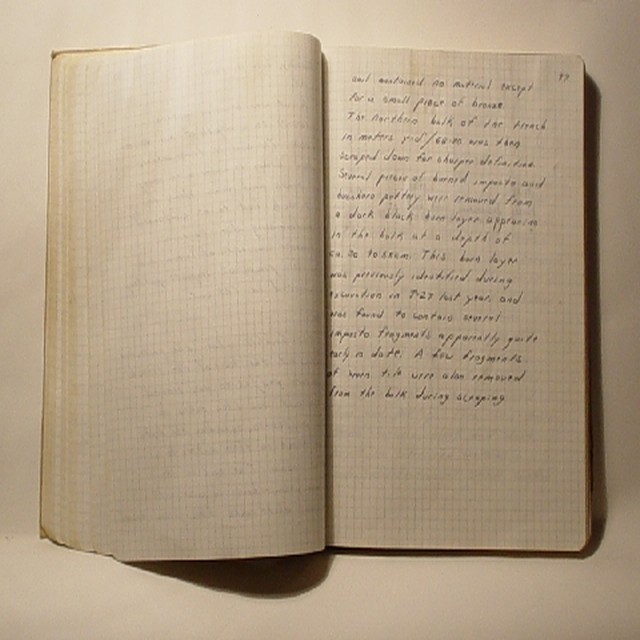 89
and contained no material except
for a small piece of bronze.
The northern balk of the trench
in meters was then
scraped down for sharper definition.
Several pieces of burned impasto and
bucchero pottery were removed from
a dark black burn layer appearing
in the balk at a depth of
ca. 50 to 55cm. This burn layer
was previously identified during
excavation in T-27 last year, and
was found to contain several
impasto fragments apparently quite
early in date. A few fragments
of were also removed
from the balk during scraping